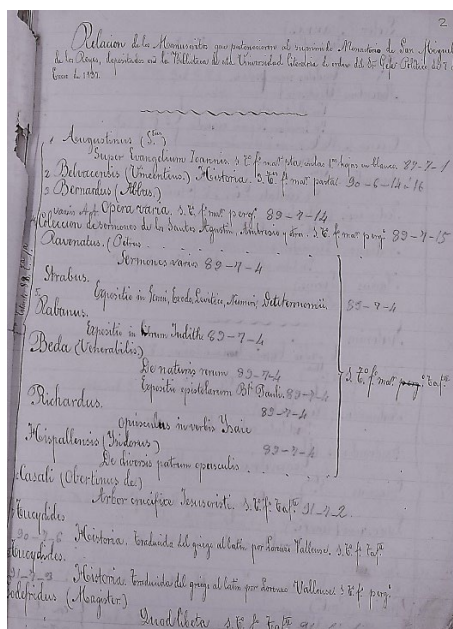 2
Relacion de los Manuscritos que pertenecieron al suprimido Monasterio de San Miguel
de los Reyes, depositados en la Biblioteca de esta Universidad Literaria de orden del Sr. Gefe Politico
Enero de
1 Augustinus (S.)
Super Evangelium Ioannis. s. f. mat. vit. hojas en blanco. 89-7-1
2 Belvacensis (Vincentius) Historia. s. f. mat. pasta 90-6-14 a 16
3 Bernardus (Abbas)
Opera varia. s. f. mat. perg. 89-7-14
Coleccion de sermones de los Santos Agustin, Ambrosio y otros. s. f. mat. perg. 89-7-15
Ravenatus. (Petrus
Sermones varios 89-7-4
Strabus.
Expositio in Genesi, Exodo, Levitico, Numeri, Deuteronomii 89-7-4
5 Rabanus.
Expositio in librum Judithe 89-7-4
Beda (Venerabilis)
De naturis rerum 89-7-4
Expositio epistolarum Bt. Pauli. 89-7-4
Richardus. 89-7-4
Opusculus in verbis Ysaie
Hispallensis (Ysidorus) 89-7-4
De diversis patrum opusculis
s. f. mat. taf.
Casali (Obertinus de)
Arbor crucifixe Jesucristi. s. f. taf. 91-4-2.
Tucydides
90-7-6 Historia. traducida del griego al latin por Lorenzo Vallense. s. f. taf.
Tucydides.
91-7-3 Historia traducida del griego al latin por Lorenzo Vallense. s. f. perg.
Godefridus (Magister.)
Quodlibeta s. f. taf.